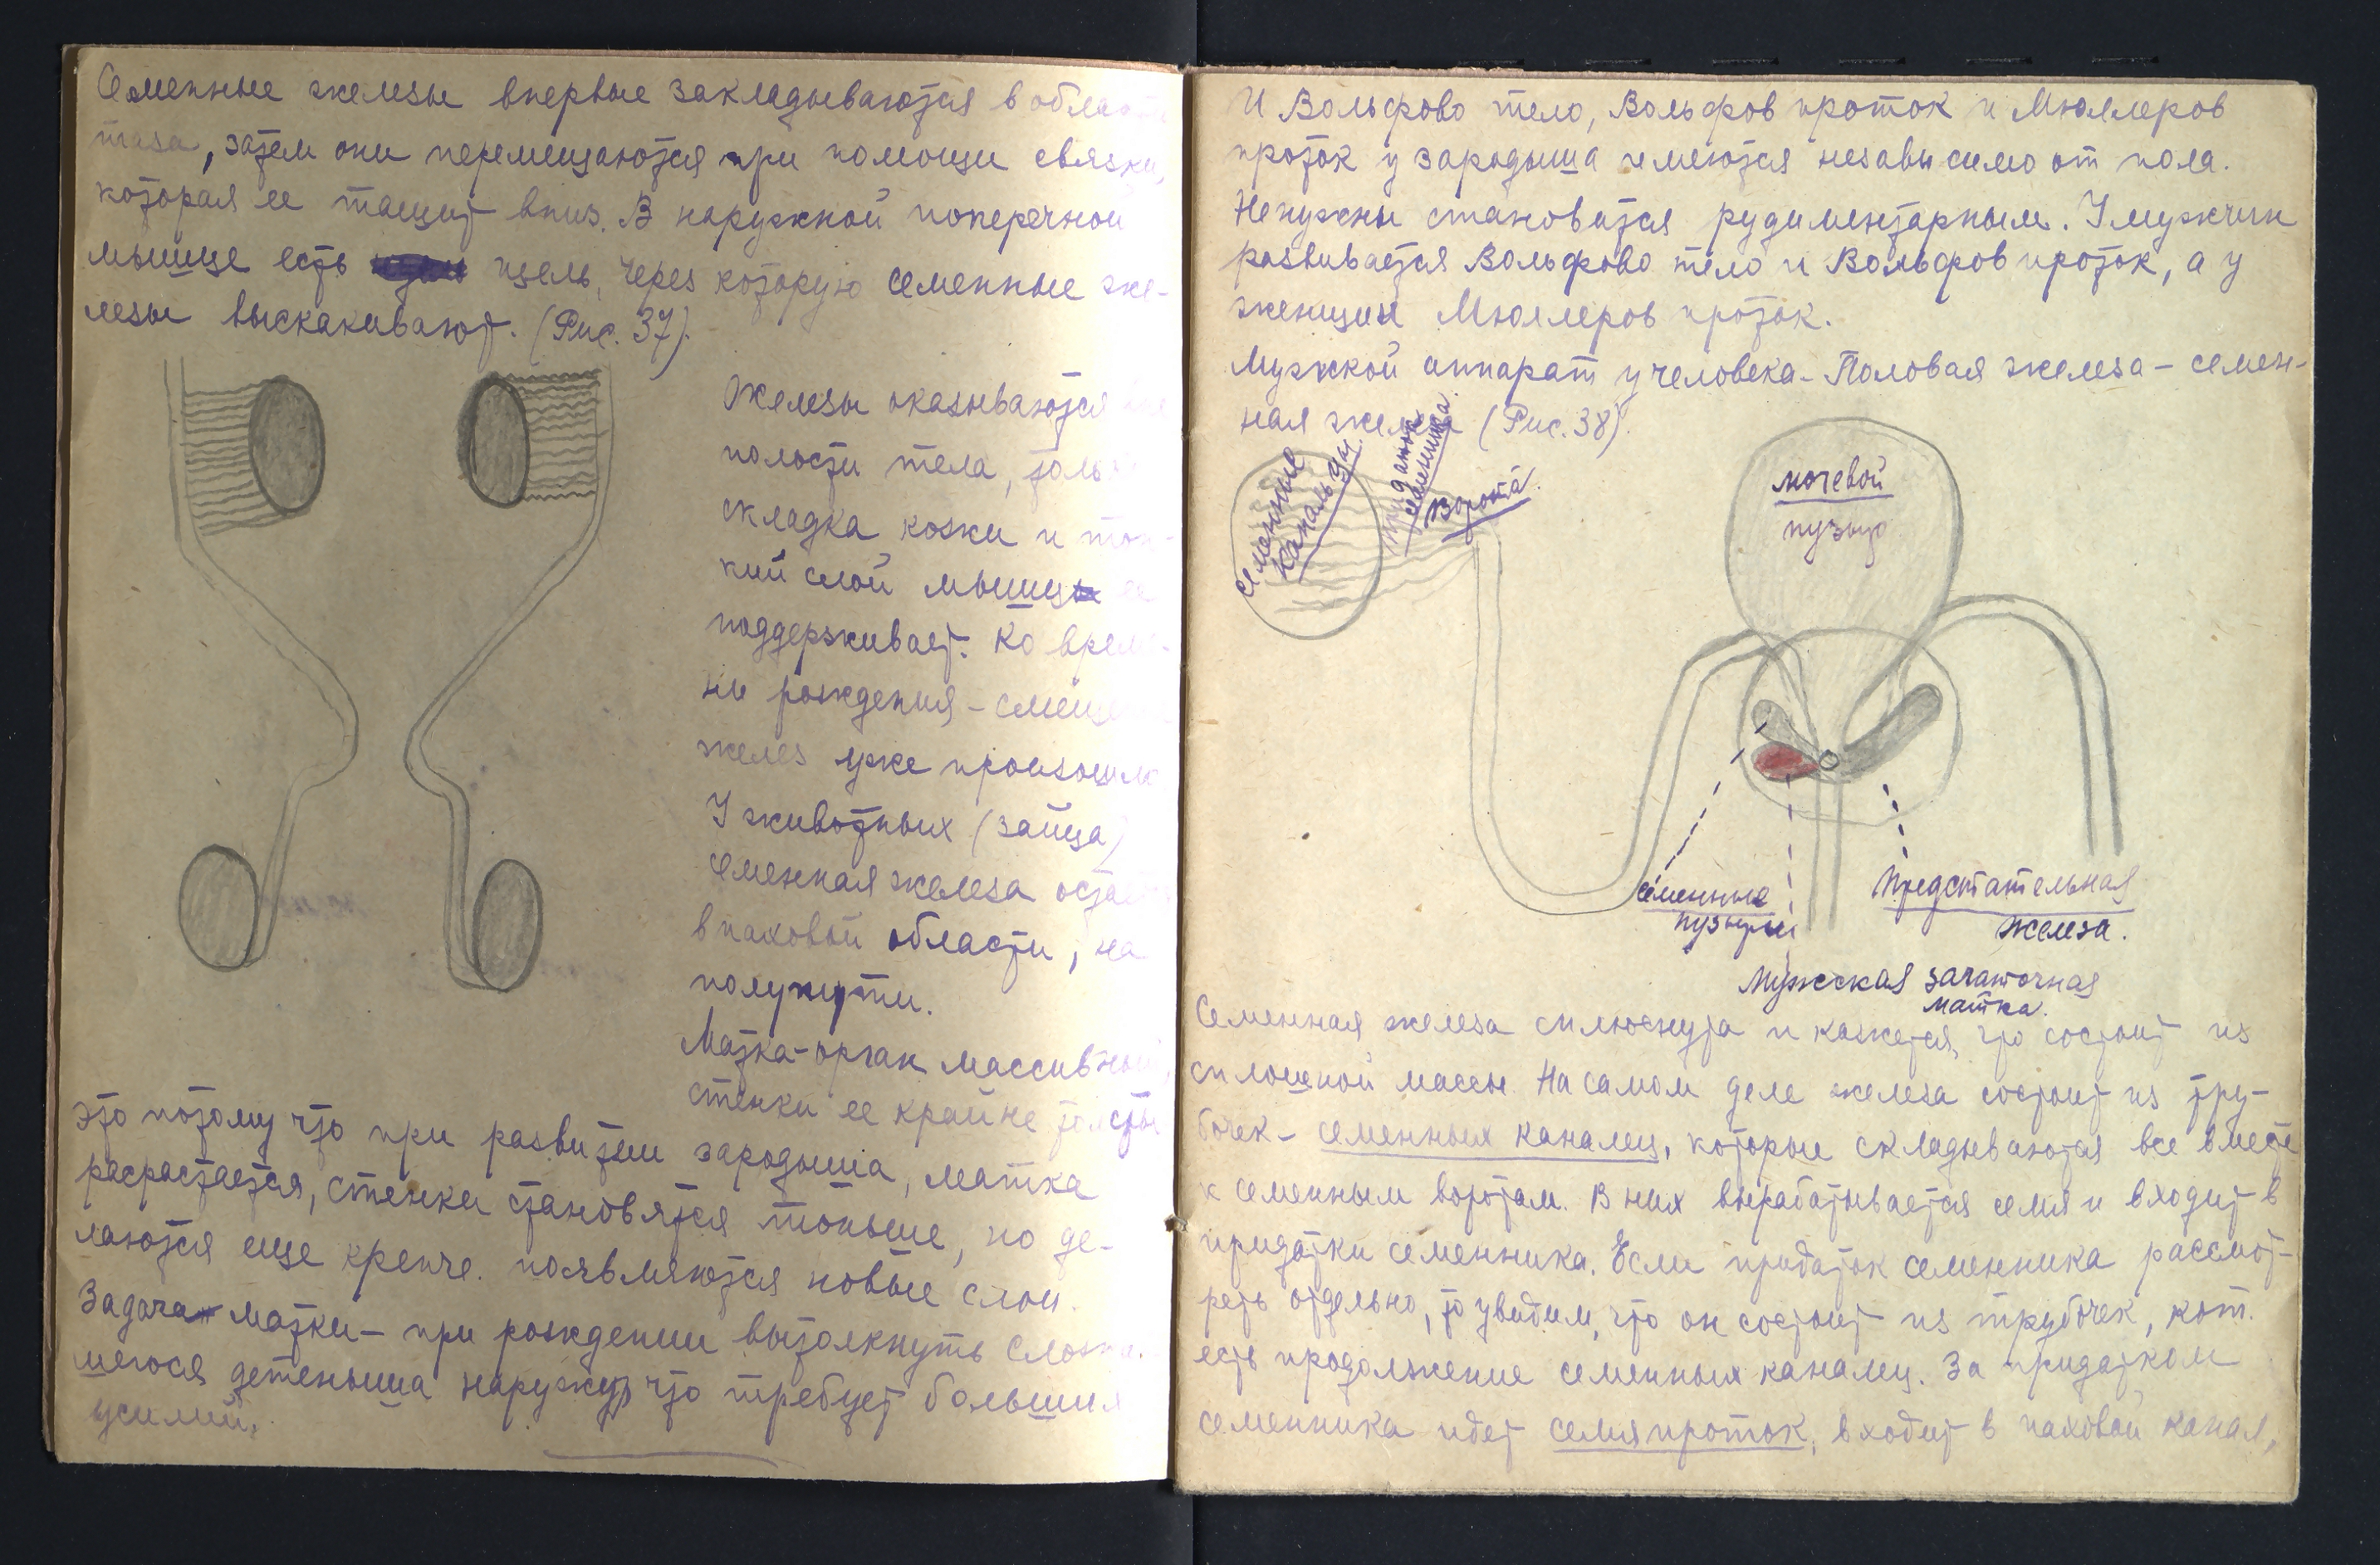 Семенные железы впервые закладываются в области
таза, затем они перемещаются при помощи связки,
которая ее тащит вниз. В наружной поперечной
мышце есть щель, через которую семенные же-
лезы выскакивают. (Рис. 37).
Железы оказываются вне
полости тела, только
складка кожи и тон-
кий слой мышц ее
поддерживает. Ко време-
ни рождения – смещение
желез уже произошло
У животных (зайца)
семенная железа остается
в паховой области, на
полупути.
Матка – орган массивный,
стенки ее крайне толсты
это потому что при развитии зародыша, матка
расрастается, стенки становятся тоньше, но де-
лаются еще крепче. появляются новые слои.
Задача матки – при рождении вытолкнуть сложив-
шегося детеныша наружу, что требует больших
усилий.
И Вольфово тело, Вольфов проток и Мюллеров
проток у зародыша имеются независимо от пола.
Ненужны становятся рудиментарным. У мужчин
развивается Вольфово тело и Вольфов проток, а у
женщин Мюллеров проток.
Мужской аппарат у человека – Половая железа – семен-
ная железа (Рис. 38).
семенные
канальцы
придаток
семенника.
Ворота.
мочевой
пузырь
семенные
пузыри
Предстательная
железа.
Мужская зачаточная
матка.
Семенная железа сплюснута и кажется, что состоит из
сплошной массы. На самом деле железа состоит из тру-
бочек – семенных каналец, которые складываются все вместе
к семенным воротам. В них вырабатывается семя и входит в
придатки семенника. Если придаток семенника рассмот-
реть отдельно, то увидим, что он состоит из трубочек, кот.
есть продолжение семенных каналец. За придатком
семенника идет семяпроток, входит в паховой канал,